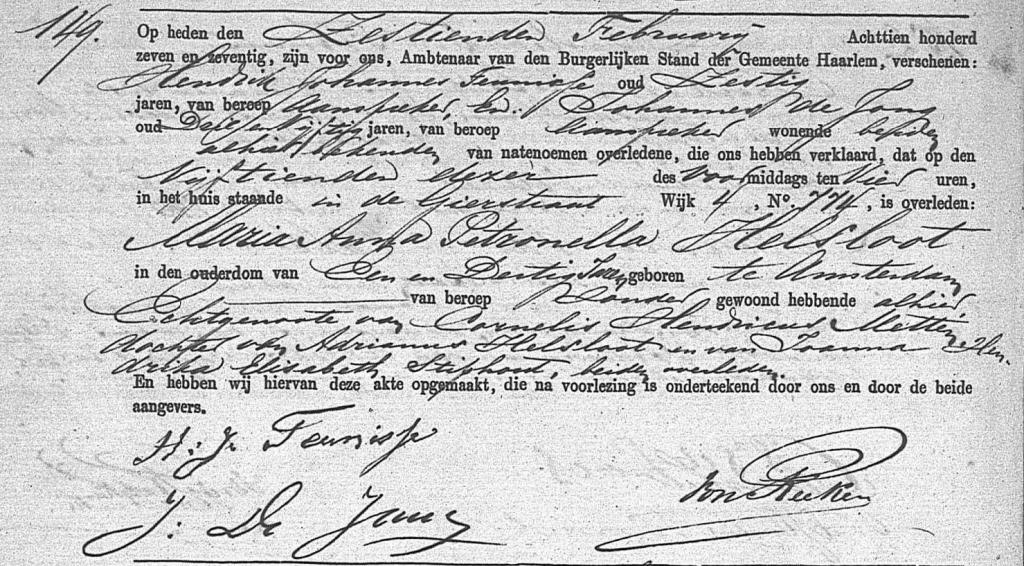 149.
Op heden den Zestienden Februarij Achttien honderd
zeven en zeventig, zijn voor ons, Ambtenaar van den Burgerlijken Stand der Gemeente Haarlem, verschenen:
Hendrik Johannes Teunisse oud Zestig
jaren, van beroep Aanspreker, en Johannes de Jong
oud Drie en Vijftig jaren, van beroep Aanspreker wonende beiden
alhier bekenden van natenoemen overledene, die ons hebben verklaard, dat op den
Vijftienden dezer des Voormiddags ten Vier uren,
in het huis staande in de Gierstraat Wijk 4, No. 774, is overleden:
Maria Anna Petronella Helsloot
in den ouderdom van Een en Dertig Jaren geboren te Amsterdam
van beroep Zonder gewoond hebbende alhier
Echtgenoote van Cornelis Hendricus Metten,
dochter van Adrianus Helsloot en van Joanna Hen-
drika Elisabeth Stifhout, beiden overleden.
En hebben wij hiervan deze akte opgemaakt, die na voorlezing is onderteekend door ons en door de beide
aangevers.
H: J. Teunisse
J: De Jong